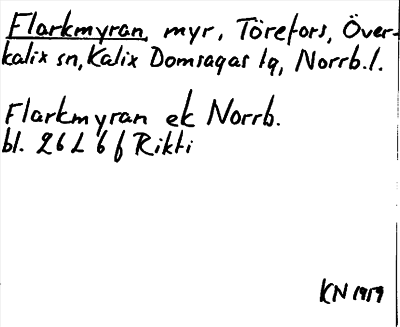 Flarkmyran, myr, Törefors, Över-
kalix sn, Kalix Domsagas lg, Norrb. l.
Flarkmyran ek Norrb.
bl. 26 L 6 f Rikti
KN 1959